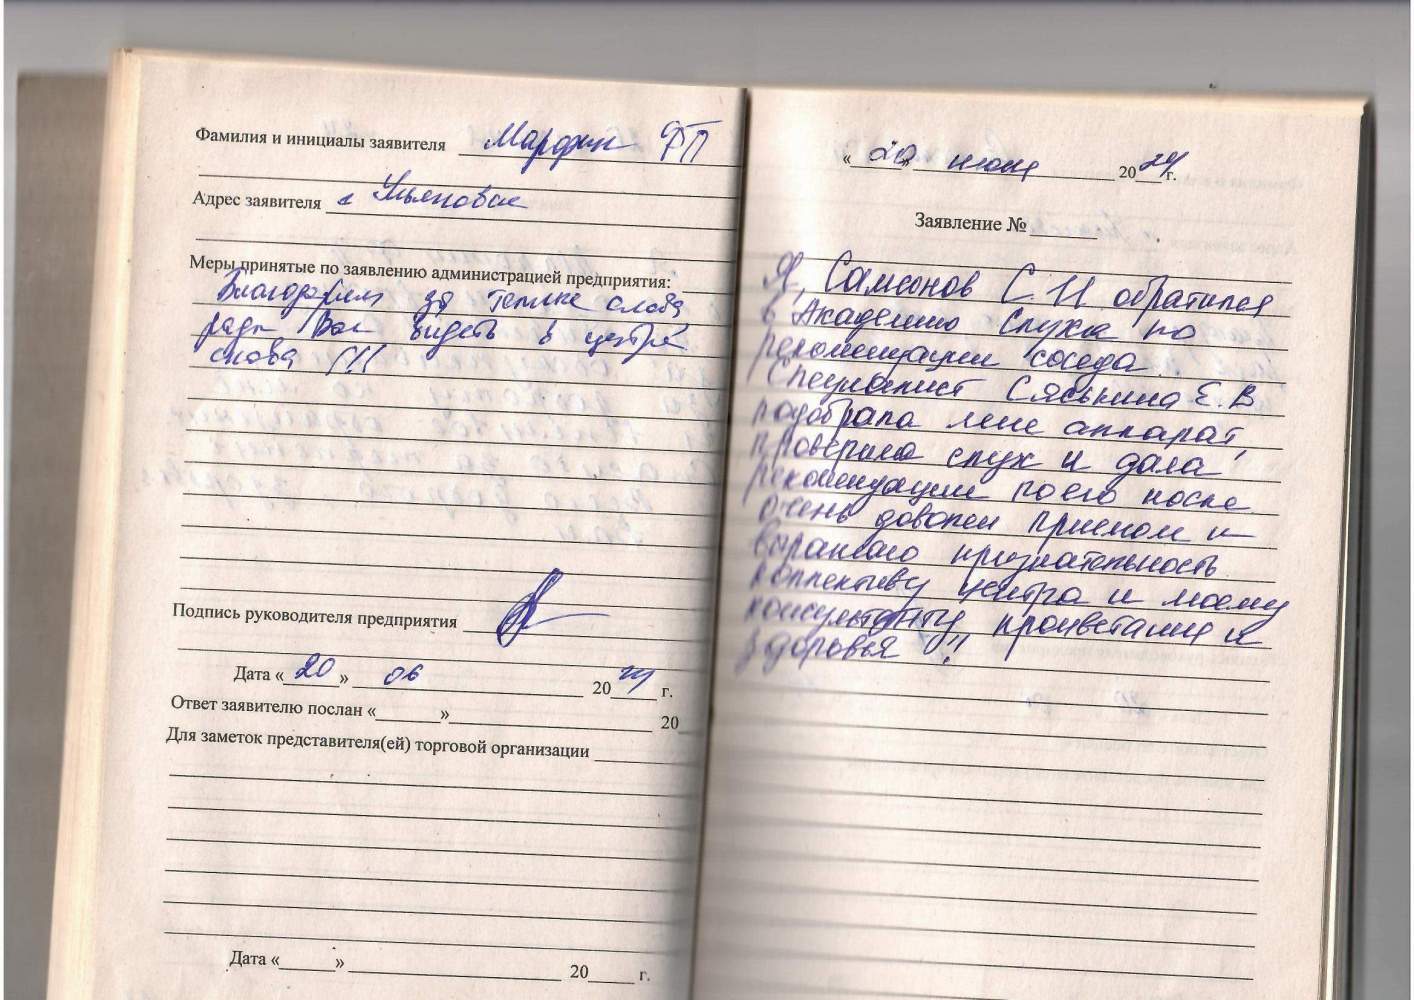 Фамилия и инициалы заявителя Марфин ФП
Адрес заявителя г Ульяновск
Меры принятые по заявлению администрацией предприятия:
Благодарим за теплые слова
рады Вас видеть в центре
снова !!!
Подпись руководителя предприятия
Дата «20» 06 2024 г.
Ответ заявителю послан «______»____________ 20__
Для заметок представителя(ей) торговой организации
Дата «______» ____________ 20____ г.
«20» июня 2024 г.
Заявление №
Я, Самсонов С. И обратился
в Академию слуха по
рекомендации соседа.
Специалист Сяськина Е.В
подобрала мне аппарат,
проверила слух и дала
рекомендации по его носке
очень доволен приемом и
выражаю признательность
коллективу центра и моему
консультанту процветания и
здоровья !!